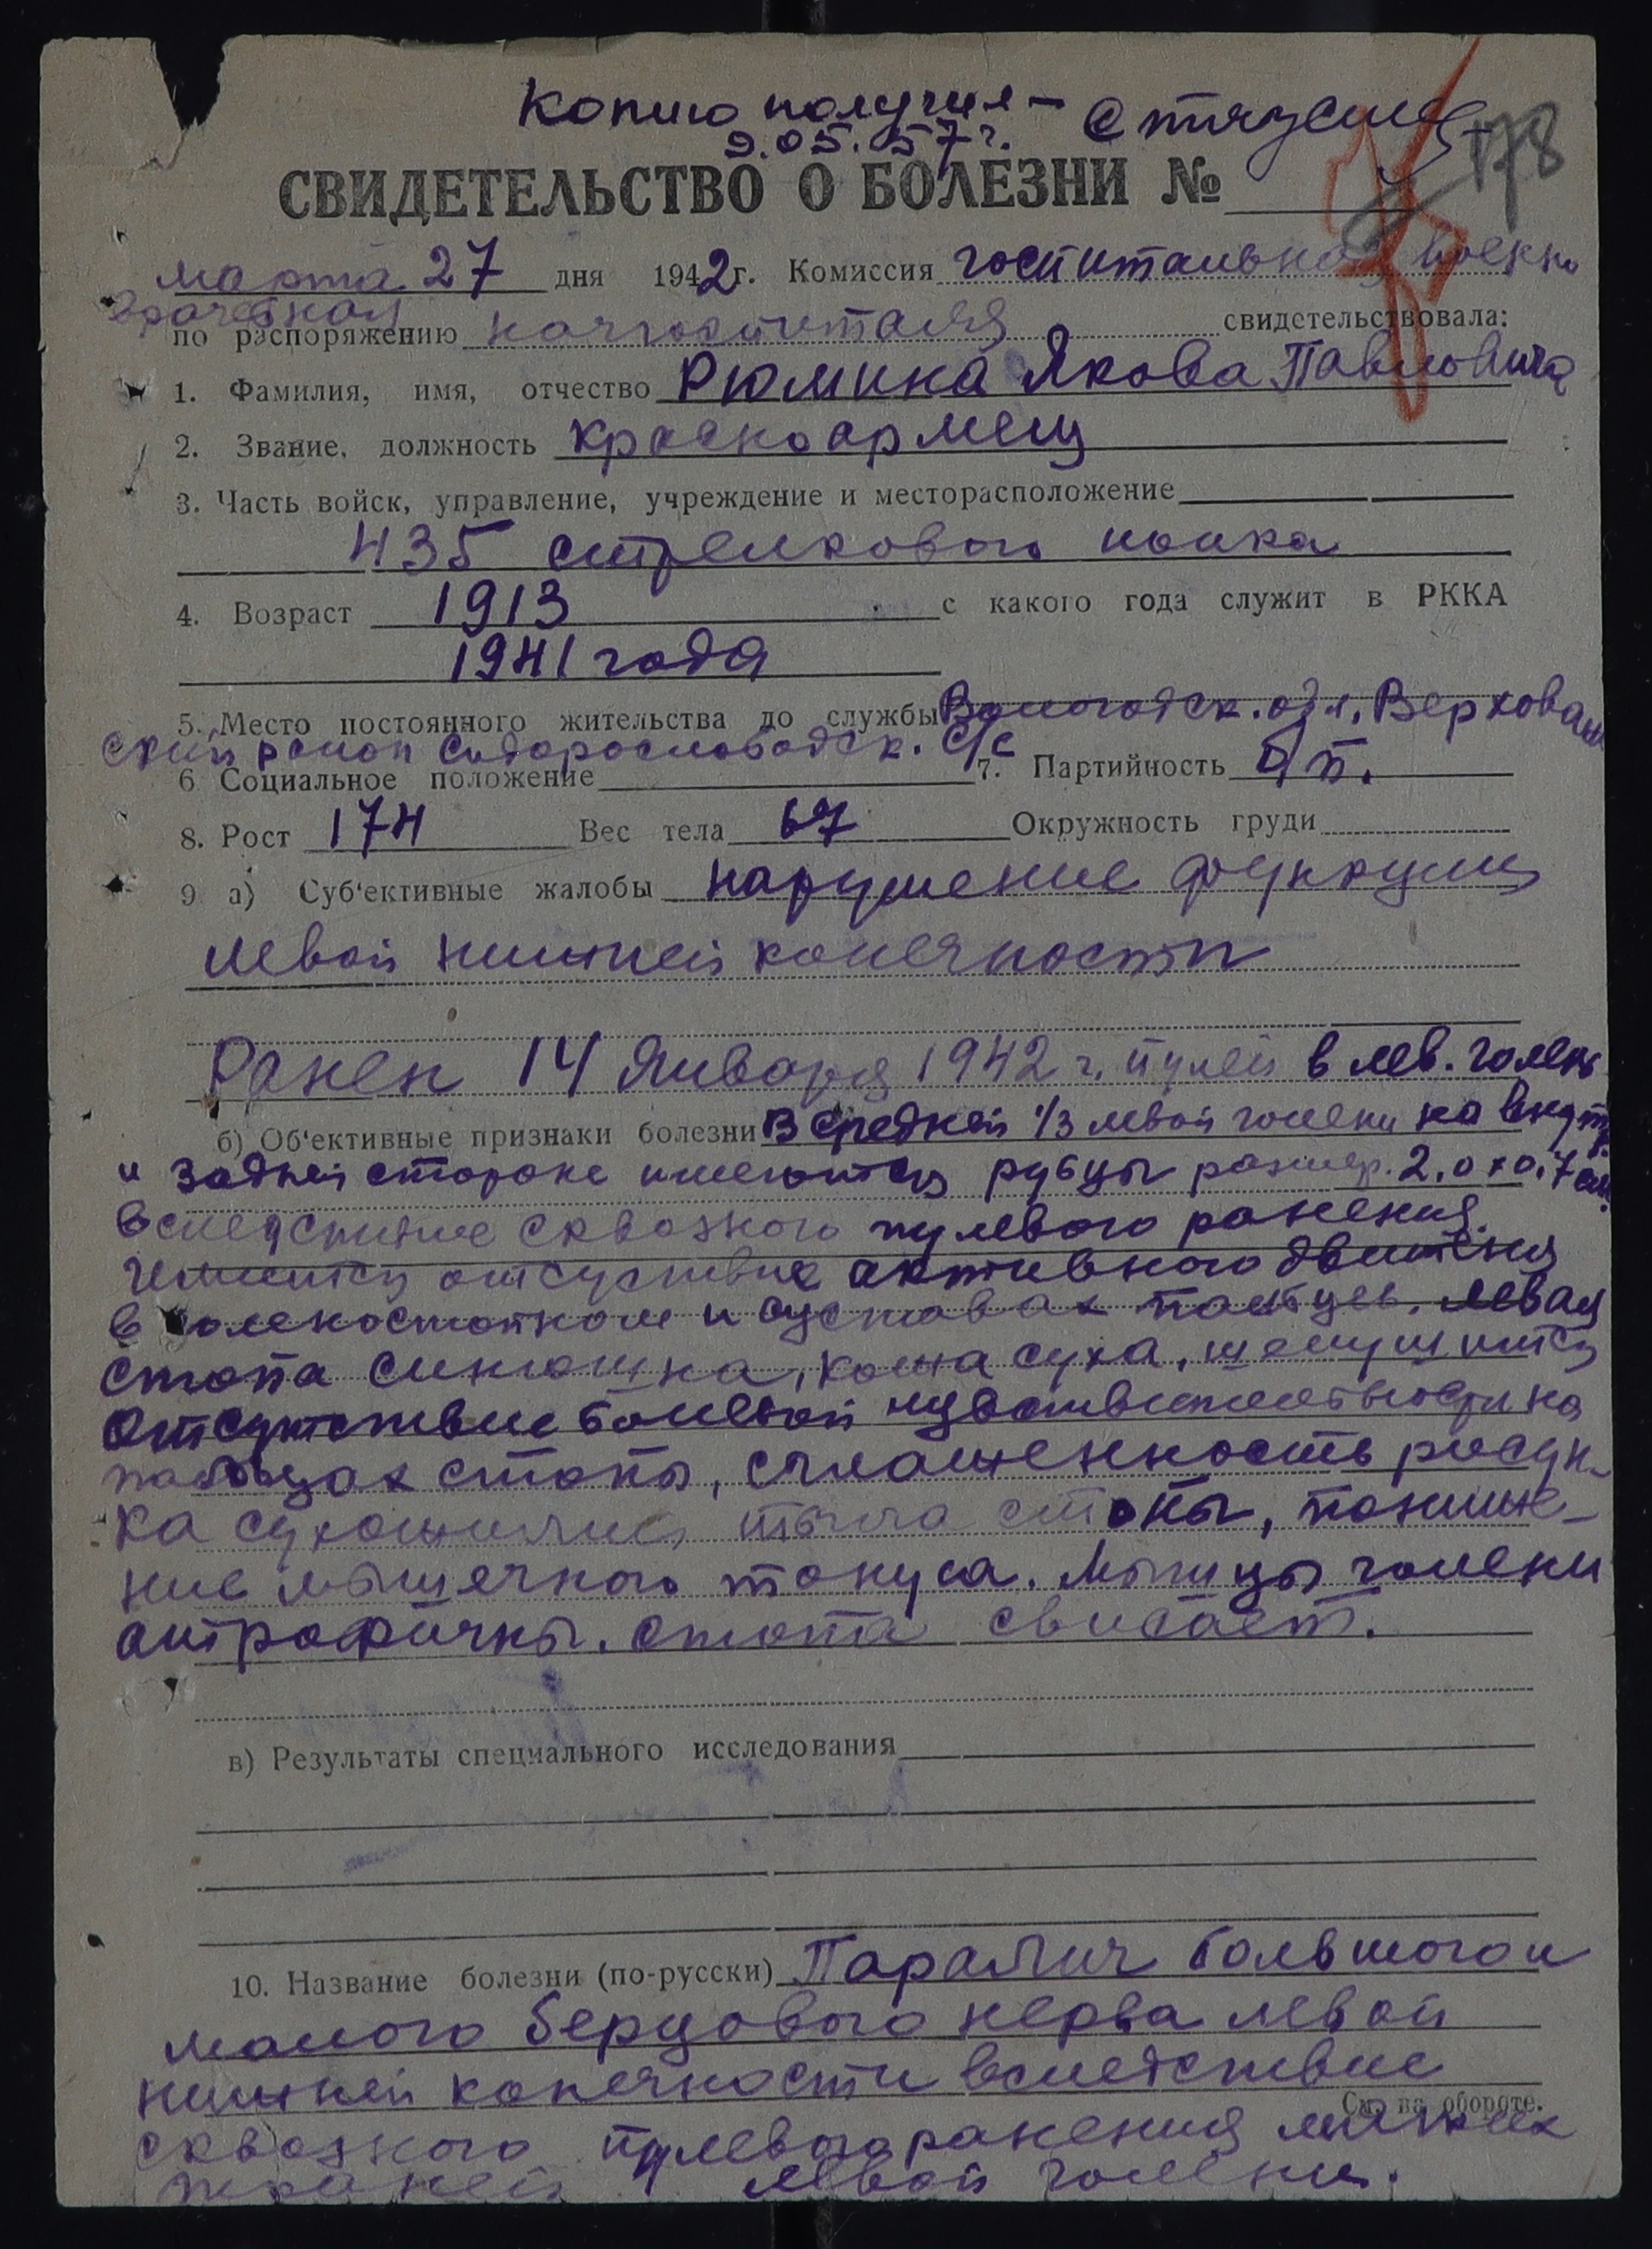 Копию получил –
9.05.57 г.
178
СВИДЕТЕЛЬСТВО О БОЛЕЗНИ №
марта 27 дня 1942 г. Комиссия госпитальная военно
врачебная
по распоряжению начгоспиталя свидетельствовала:
1. Фамилия, имя, отчество Рюмина Якова Павловича
2. Звание, должность красноармеец
3. Часть войск, управление, учреждение и месторасположение
435 стрелкового полка
4. Возраст 1913 с какого года служит в РККА
1941 года
5. Место постоянного жительства до службы Вологодск. обл., Верховаж
ский район Сидорослободск. с/с
6 Социальное положение 7. Партийность б/п.
8. Рост 174 Вес тела 67 Окружность груди
9 а) Суб'ективные жалобы нарушение функции
левой нижней конечности
Ранен 14 января 1942 г. пулей в лев. голень
б) Об'ективные признаки болезни В средней 1/3 левой голени на внутр.
и задней стороне имеются рубцы размер. 2,0 х 0,7 см.
вследствие сквозного пулевого ранения.
Имеится отсуствие активного движения
в голеностопном и суставах пальцев. Левая
стопа синюшна, кожа суха, шелушится
Отсутствие болевой чувствительности на
пальцах стопы, сглаженность рисун-
ка сухожилий тыла стопы, пониже-
ние мышечного тонуса. Мышцы голени
антрофичны. стопа свисает.
в) Результаты специального исследования
10. Название болезни (по-русски) Паралич большого и
малого берцового нерва левой
нижней конечности вследствие
См. на обороте.
сквозного пулевого ранения мягких
тканей левой голени.